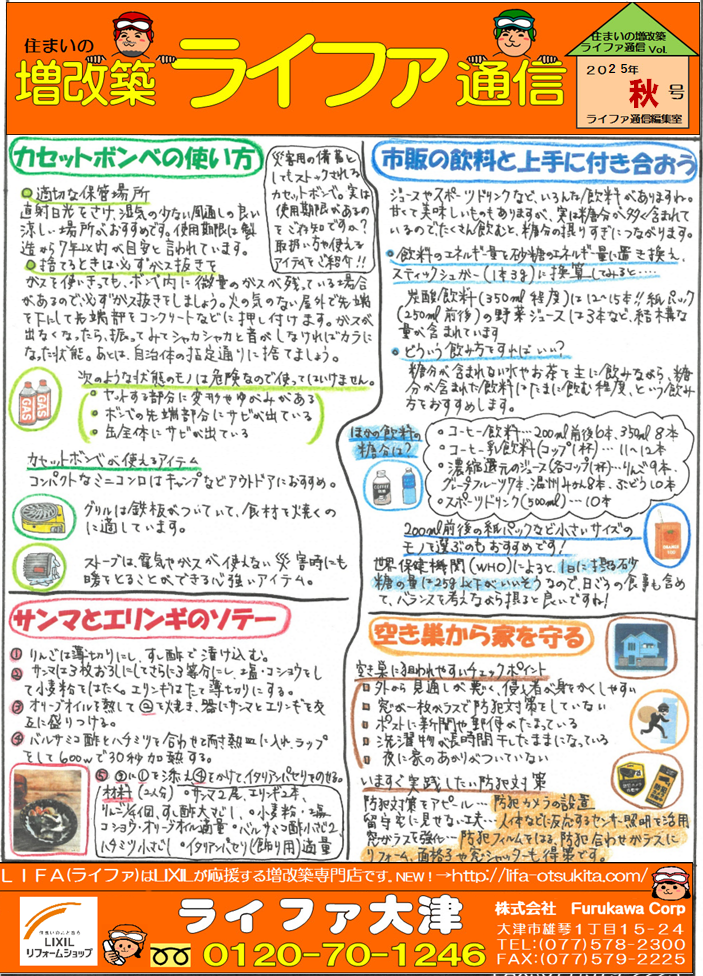 住まいの
増改築 ライファ 通信
住まいの増改築
ライファ通信 Vol.
2025年
秋号
ライファ通信編集室
カセットボンベの使い方
災害用の備蓄と
してもストックされる
カセットボンベ。実は
使用期限があるの
をご存知ですか?
取扱い方や使える
アイテムをご紹介!!
適切な保管場所
直射日光をさけ、湿気の少ない風通しの良い
涼しい場所がおすすめです。使用期限は製
造から7年以内が目安と言われています。
捨てるときは必ずガス抜きを
ガスを使いきっても、ボンベ内に微量のガスが残っている場合
があるので必ずガス抜きをしましょう。火の気のない屋外で先端
を下にして先端部をコンクリートなどに押し付けます。ガスが
出なくなったら、振ってみてシャカシャカと音がしなければカラに
なった状態。あとは、自治体の指定通りに捨てましょう。
次のような状態のモノは危険なので使ってはいけません。
・セットする部分に変形やゆがみがある
・ボンベの先端部分にサビが出ている
・缶全体にサビが出ている
GAS
GAS
カセットボンベが使えるアイテム
コンパクトなミニコンロはキャンプなどアウトドアにおすすめ。
グリルは鉄板がついていて、食材を焼くの
に適しています。
ストーブは、電気やガスが使えない災害時にも
暖をとることができる心強いアイテム。
市販の飲料と上手に付き合おう
ジュースやスポーツドリンクなど、いろんな飲料がありますね。
甘くて美味しいものもありますが、実は糖分が多く含まれて
いるのでたくさん飲むと、糖分の摂りすぎにつながります。
・飲料のエネルギー量を砂糖のエネルギー量に置き換え、
スティックシュガー(1本3g)に換算してみると‥‥
炭酸飲料(350ml程度)は12~15本!!紙パック
(250ml前後)の野菜ジュースは3本など、結構な
量が含まれています
・どういう飲み方をすればいい?
糖分が含まれない水やお茶を主に飲みながら、糖
分が含まれた飲料はたまに飲む程度、という飲み
方をおすすめします。
ほかの飲料の
糖分は?
・コーヒー飲料…200ml前後6本、350ml8本
・コーヒー乳飲料(コップ1杯)…11~12本
・濃縮還元のジュース(各コップ1杯)…りんご9本、
グレープフルーツ7本、温州みかん8本、ぶどう10本
・スポーツドリンク(500ml)…10本
200ml前後の紙パックなど小さいサイズの
モノを選ぶのもおすすめです!
世界保健機関(WHO)によると、1日に摂る砂
糖の量は25g以下がいいそうなので、日ごろの食事も含め
て、バランスを考えながら摂ると良いですね!
サンマとエリンギのソテー
① りんごは薄切りにし、すし酢で漬け込む。
② サンマは3枚おろしにしてさらに3等分にし、塩・コショウをし
て小麦粉をはたく。エリンギはたて薄切りにする。
③ オリーブオイルを熱して②を焼き、器にサンマとエリンギを交
互に盛りつける。
④ バルサミコ酢とハチミツを合わせて耐熱皿に入れ、ラップ
をして600wで30秒加熱する。
⑤ ③に①を添え④をかけて、イタリアンパセリをのせる。
材料(2人分) ・サンマ2尾、エリンギ2本、
りんご1/4個、すし酢大さじ1、・小麦粉・塩
コショウ・オリーブオイル適量 ・バルサミコ酢小さじ2、
ハチミツ小さじ1 ・イタリアンパセリ(飾り用)適量
空き巣から家を守る
空き巣に狙われやすいチェックポイント
外から見通しが悪く、侵入者が身をかくしやすい
窓が一枚ガラスで防犯対策をしていない
ポストに新聞や郵便がたまっている
洗濯物が長時間干したままになっている
夜に家のあかりがついていない
いますぐ実践したい防犯対策
防犯対策をアピール…防犯カメラの設置
留守宅に見せない工夫…人体などに反応するセンサー照明を活用
窓ガラスを強化…防犯フィルムをはる、防犯合わせガラスに
リフォーム、面格子や窓シャッターも得策です。
LIFA(ライファ)はLIXILが応援する増改築専門店です。NEW!→http://lifa-otsukita.com/
住まいのことなら
LIXIL
リフォームショップ
ライファ大津
0120-70-1246
株式会社 Furukawa Corp
大津市雄琴1丁目15-24
TEL:(077)578-2300
FAX:(077)579-2225